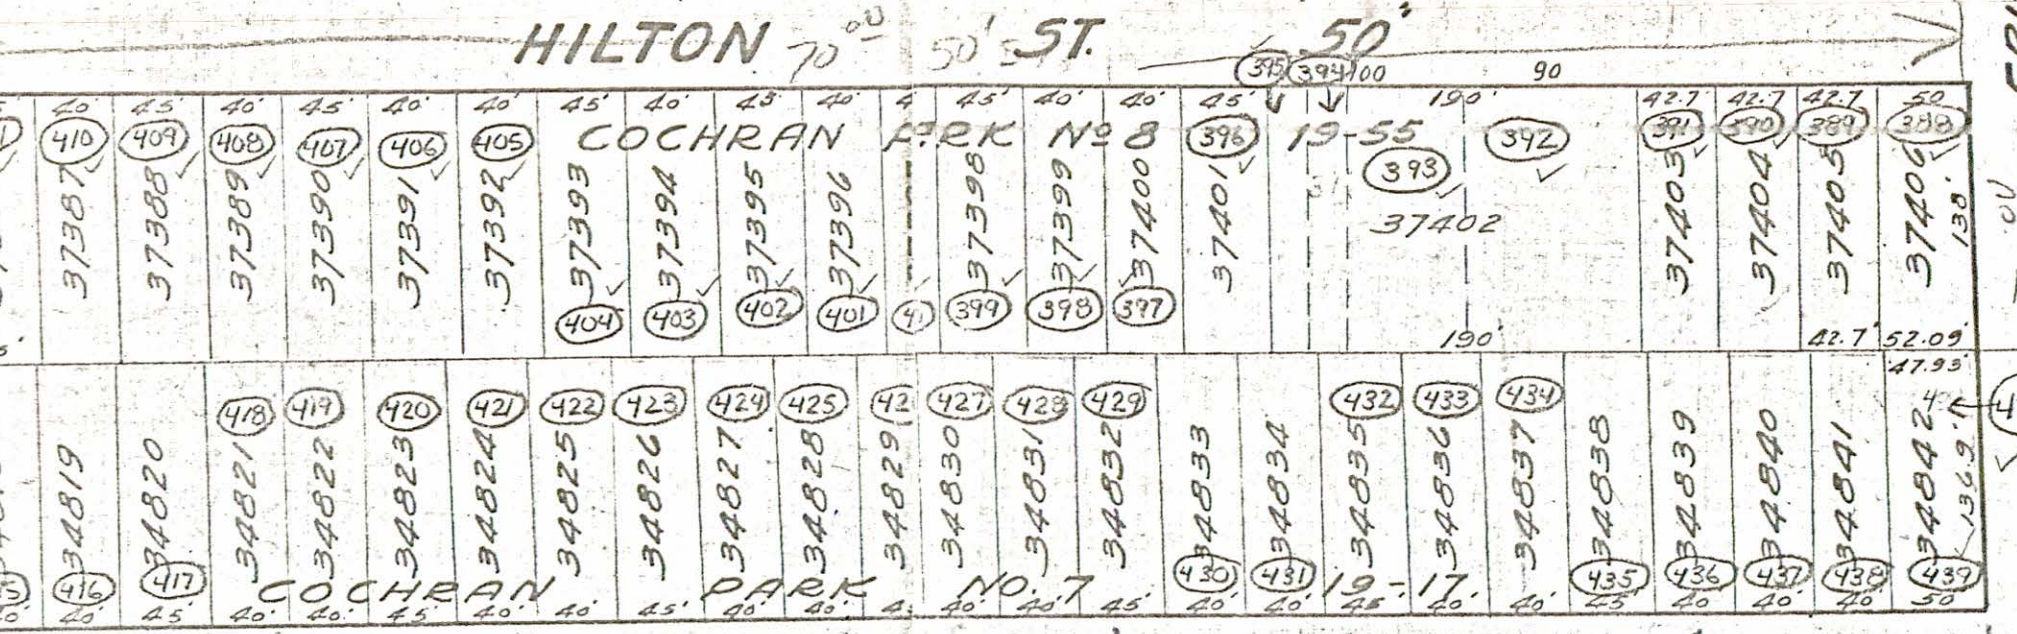 HILTON 70 00 50' ST. 50'
395 394 100 90
40' 45' 40' 45' 40' 40' 45' 40' 45' 40' 4 45' 40' 40' 45' 190' 42.7 42.7 42.7 50
410 409 408 407 406 405 COCHRAN PARK No 8 396 19-55 392 391 390 389 388
393
37387 37388 37389 37390 37391 37392 37393 37394 37395 37396 37398 37399 37400 37401 37402 37403 37404 37405 37406 138'
404 403 402 401 399 398 397
190' 42.7' 52.09'
47.93'
418 419 420 421 422 423 424 425 42 427 428 429 432 433 434
34819 34820 34821 34822 34823 34824 34825 34826 34827 34828 34829 34830 34831 34832 34833 34834 34835 34836 34837 34838 34839 34840 34841 34842 136.9'
416 417 COCHRAN PARK NO. 7 430 431 19-17 435 436 437 438 439
40' 45' 40' 40' 45' 40' 40' 45' 40' 40' 4 40' 40' 45' 40' 40' 45' 40' 40' 45' 40 40' 40' 50